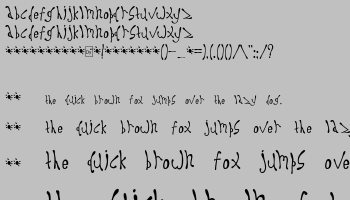 abcdefghijklmnopqrstuvwxyz
abcdefghijklmnopqrstuvwxyz
**********□*!*******()--_*=),(.()()/\"::/?
** the quick brown fox jumps over the lazy dog.
** the quick brown fox jumps over the laz
** the quick brown fox jumps ove
the quick brow